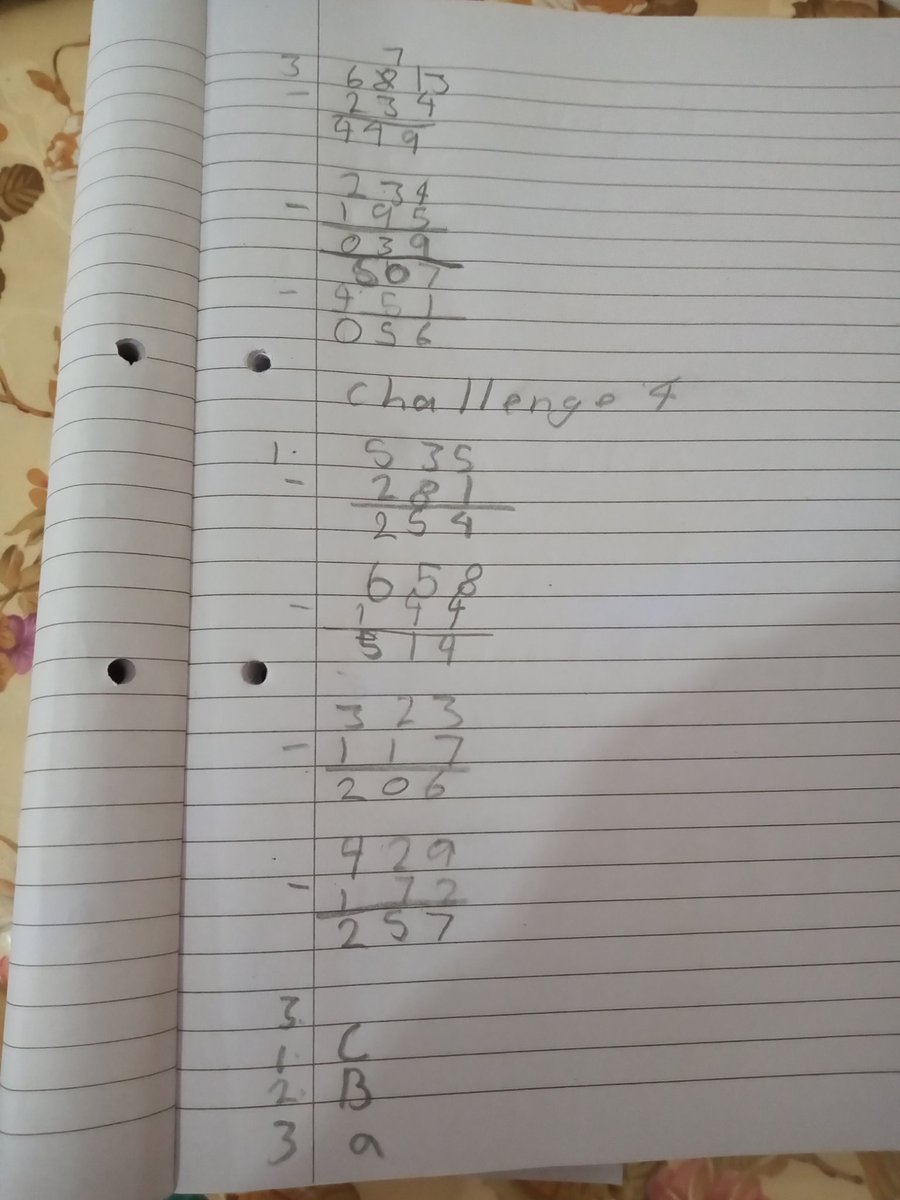 7
3 6 8 13
- 2 3 4
4 4 9
2 3 4
- 1 9 5
0 3 9
5 0 7
- 4 5 1
0 5 6
Challenge 4
1. 5 3 5
- 2 8 1
2 5 4
6 5 8
- 1 4 4
5 1 4
3 2 3
- 1 1 7
2 0 6
4 2 9
- 1 7 2
2 5 7
3.
1. C
2. B
3 a